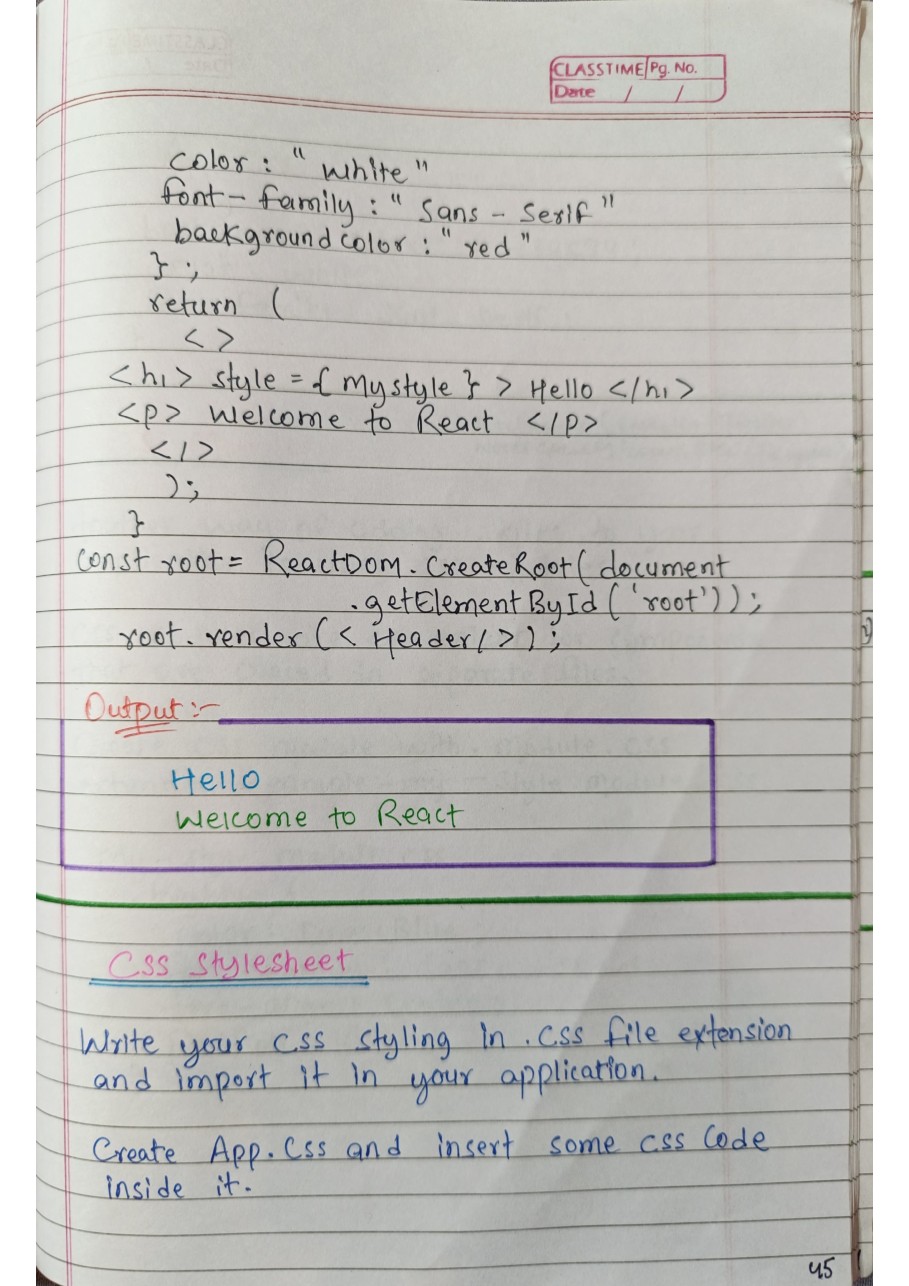 CLASSTIME Pg. No.
Date / /
color : " white "
font - family : " Sans - Serif "
background color : " red "
} ;
return (
< >
<h1> style = { mystyle } > Hello </h1>
<p> Welcome to React </p>
</>
);
}
const root = ReactDom . CreateRoot ( document
. getElement ById ( 'root' ) ) ;
root . render ( < Header / > ) ;
Output :-
Hello
Welcome to React
Css Stylesheet
Write your css styling in . css file extension
and import it in your application.
Create App . Css and insert some css Code
inside it .
45